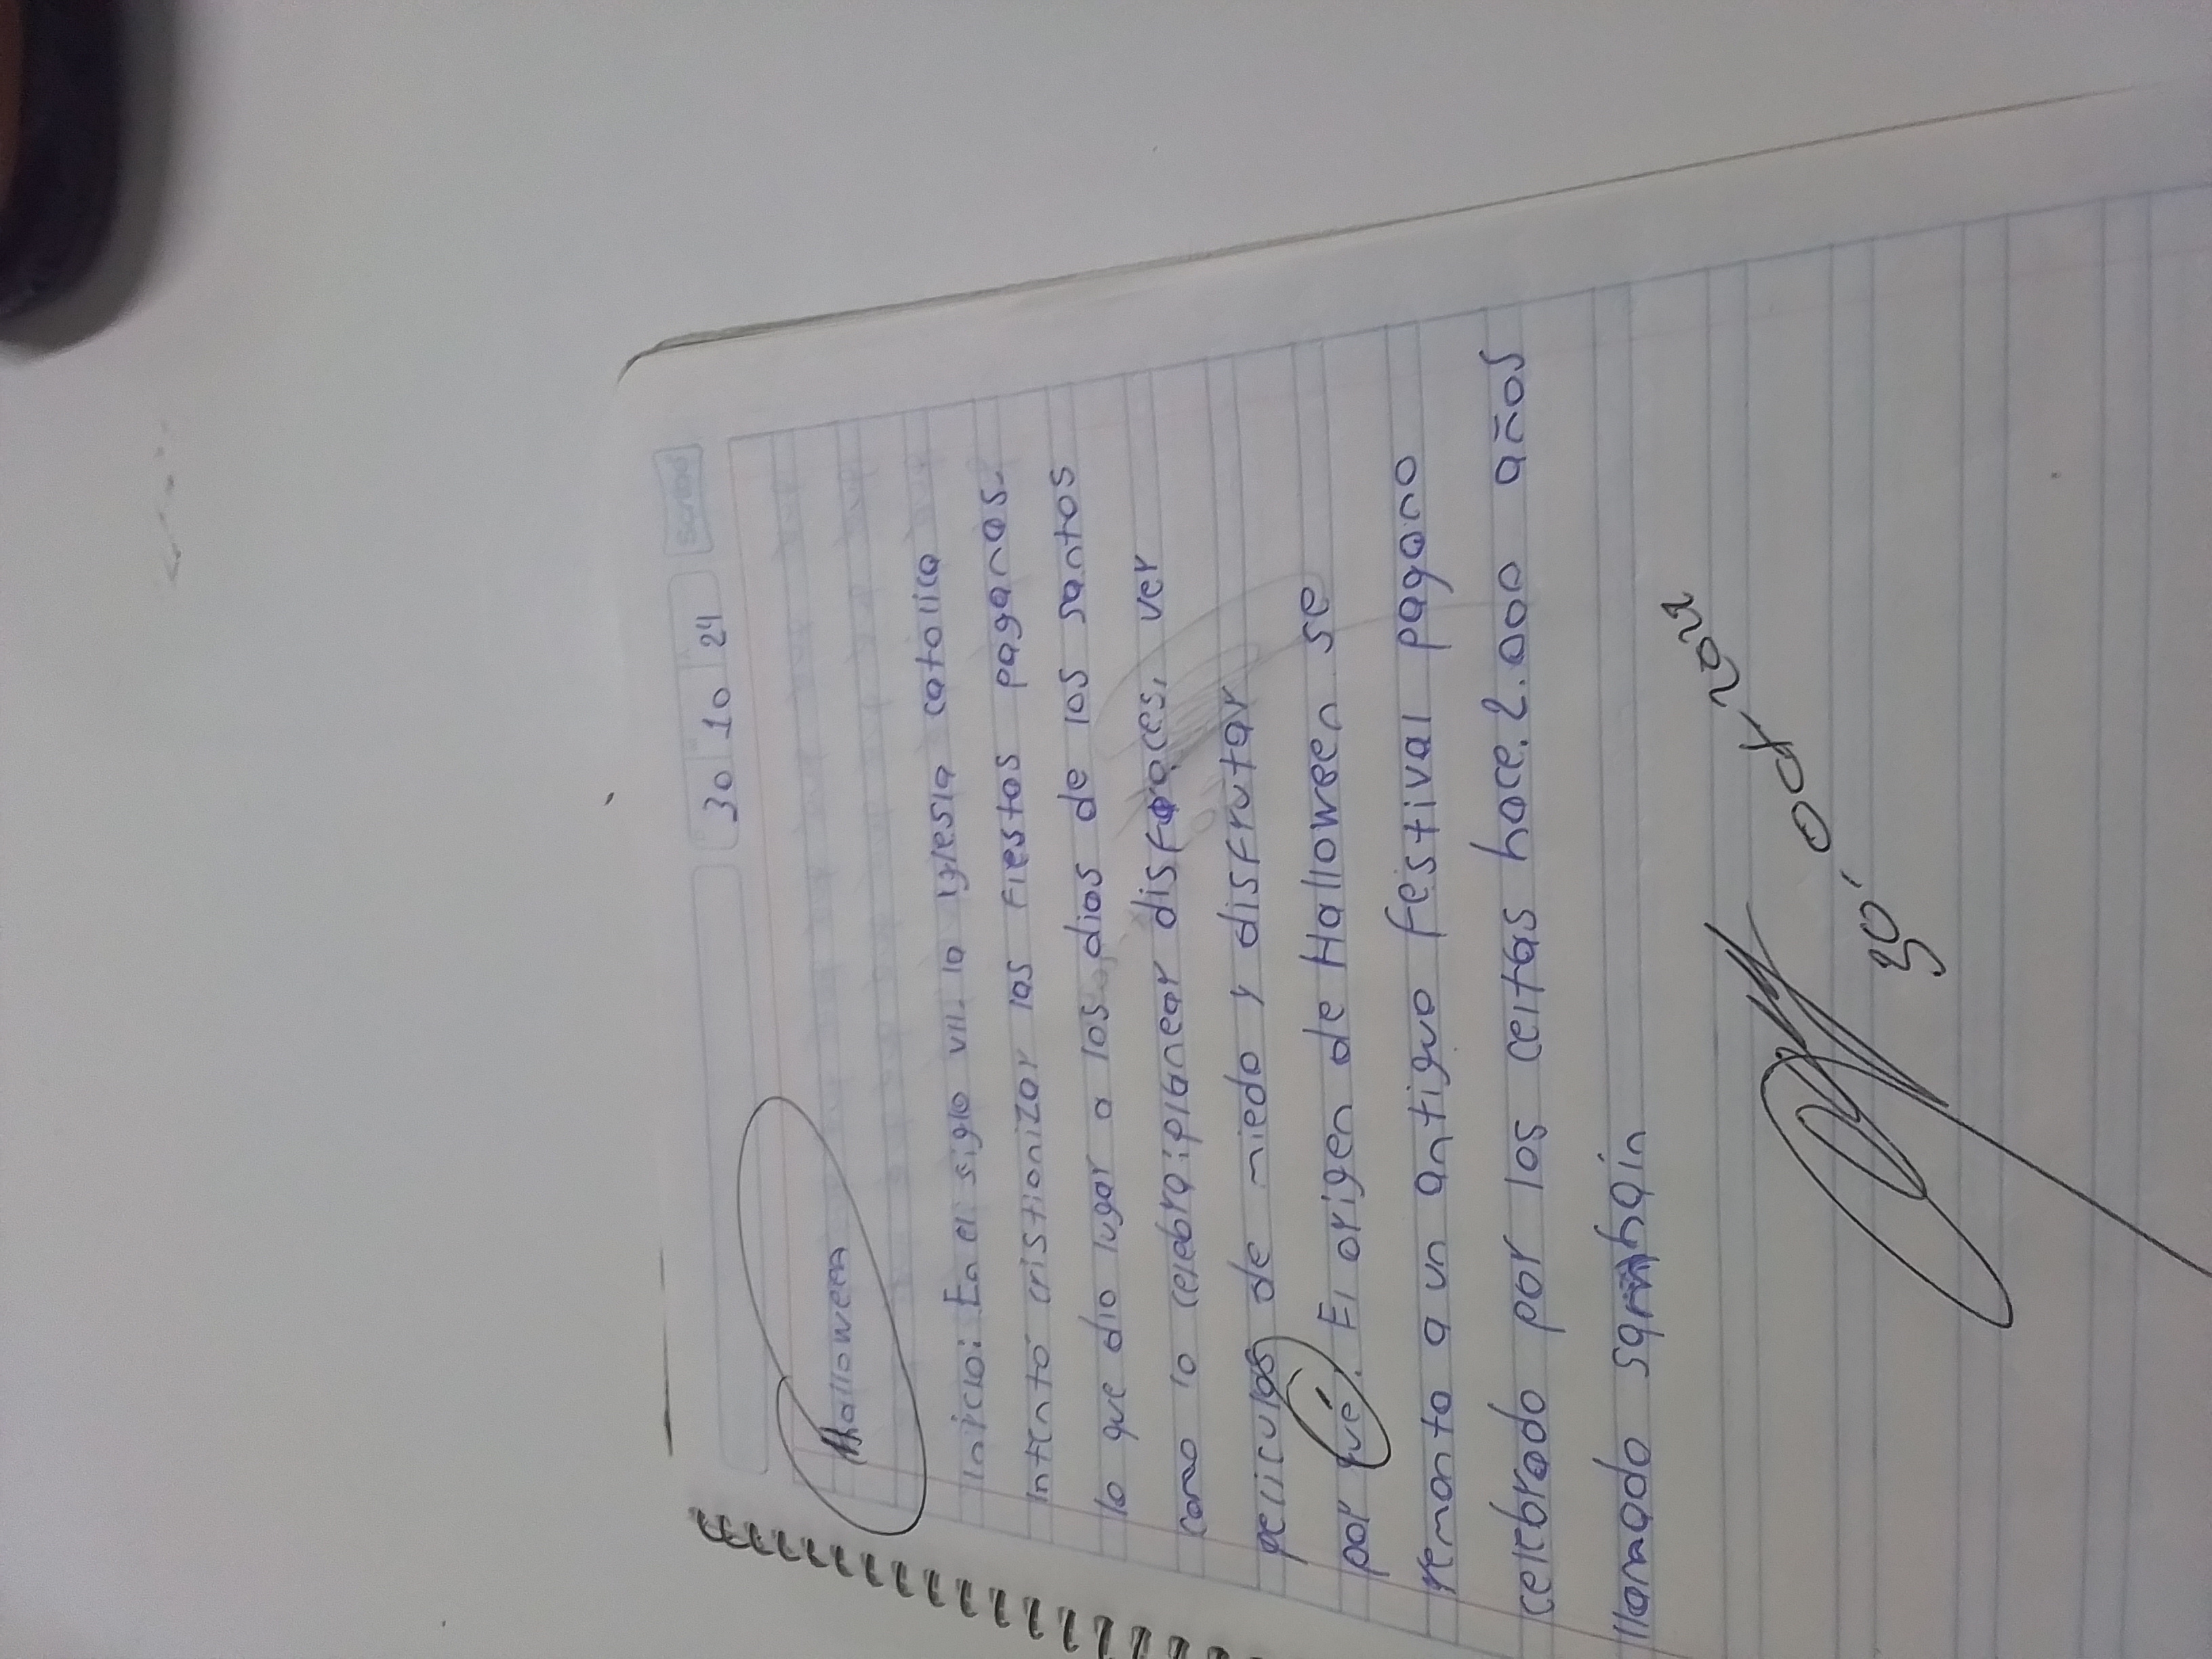 Scribe
30 10 24
Halloween
Inicio: En el siglo VII la iglesia catolica
intentó cristionizar las fiestas paganas.
lo que dio lugar a los dias de los santos
como lo celebra: planear disfraces, ver
peliculas de miedo y disfrutar
por qué. El origen de Halloween se
remonta a un antiguo festival pagano
celebrado por los celtas hace 2.000 años
llamado samhain
30, Oct 2024